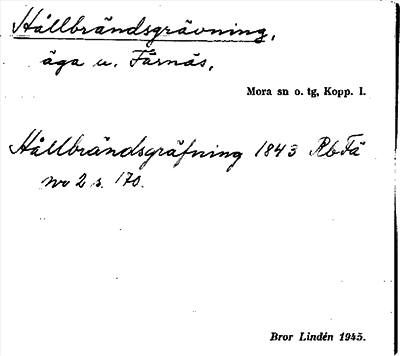 Hållbrändsgrävning,
äga u. Färnäs,
Mora sn o. tg, Kopp. l.
Hållbrändsgräfning 1843 RbFä
no 2 s. 170.
Bror Lindén 1945.